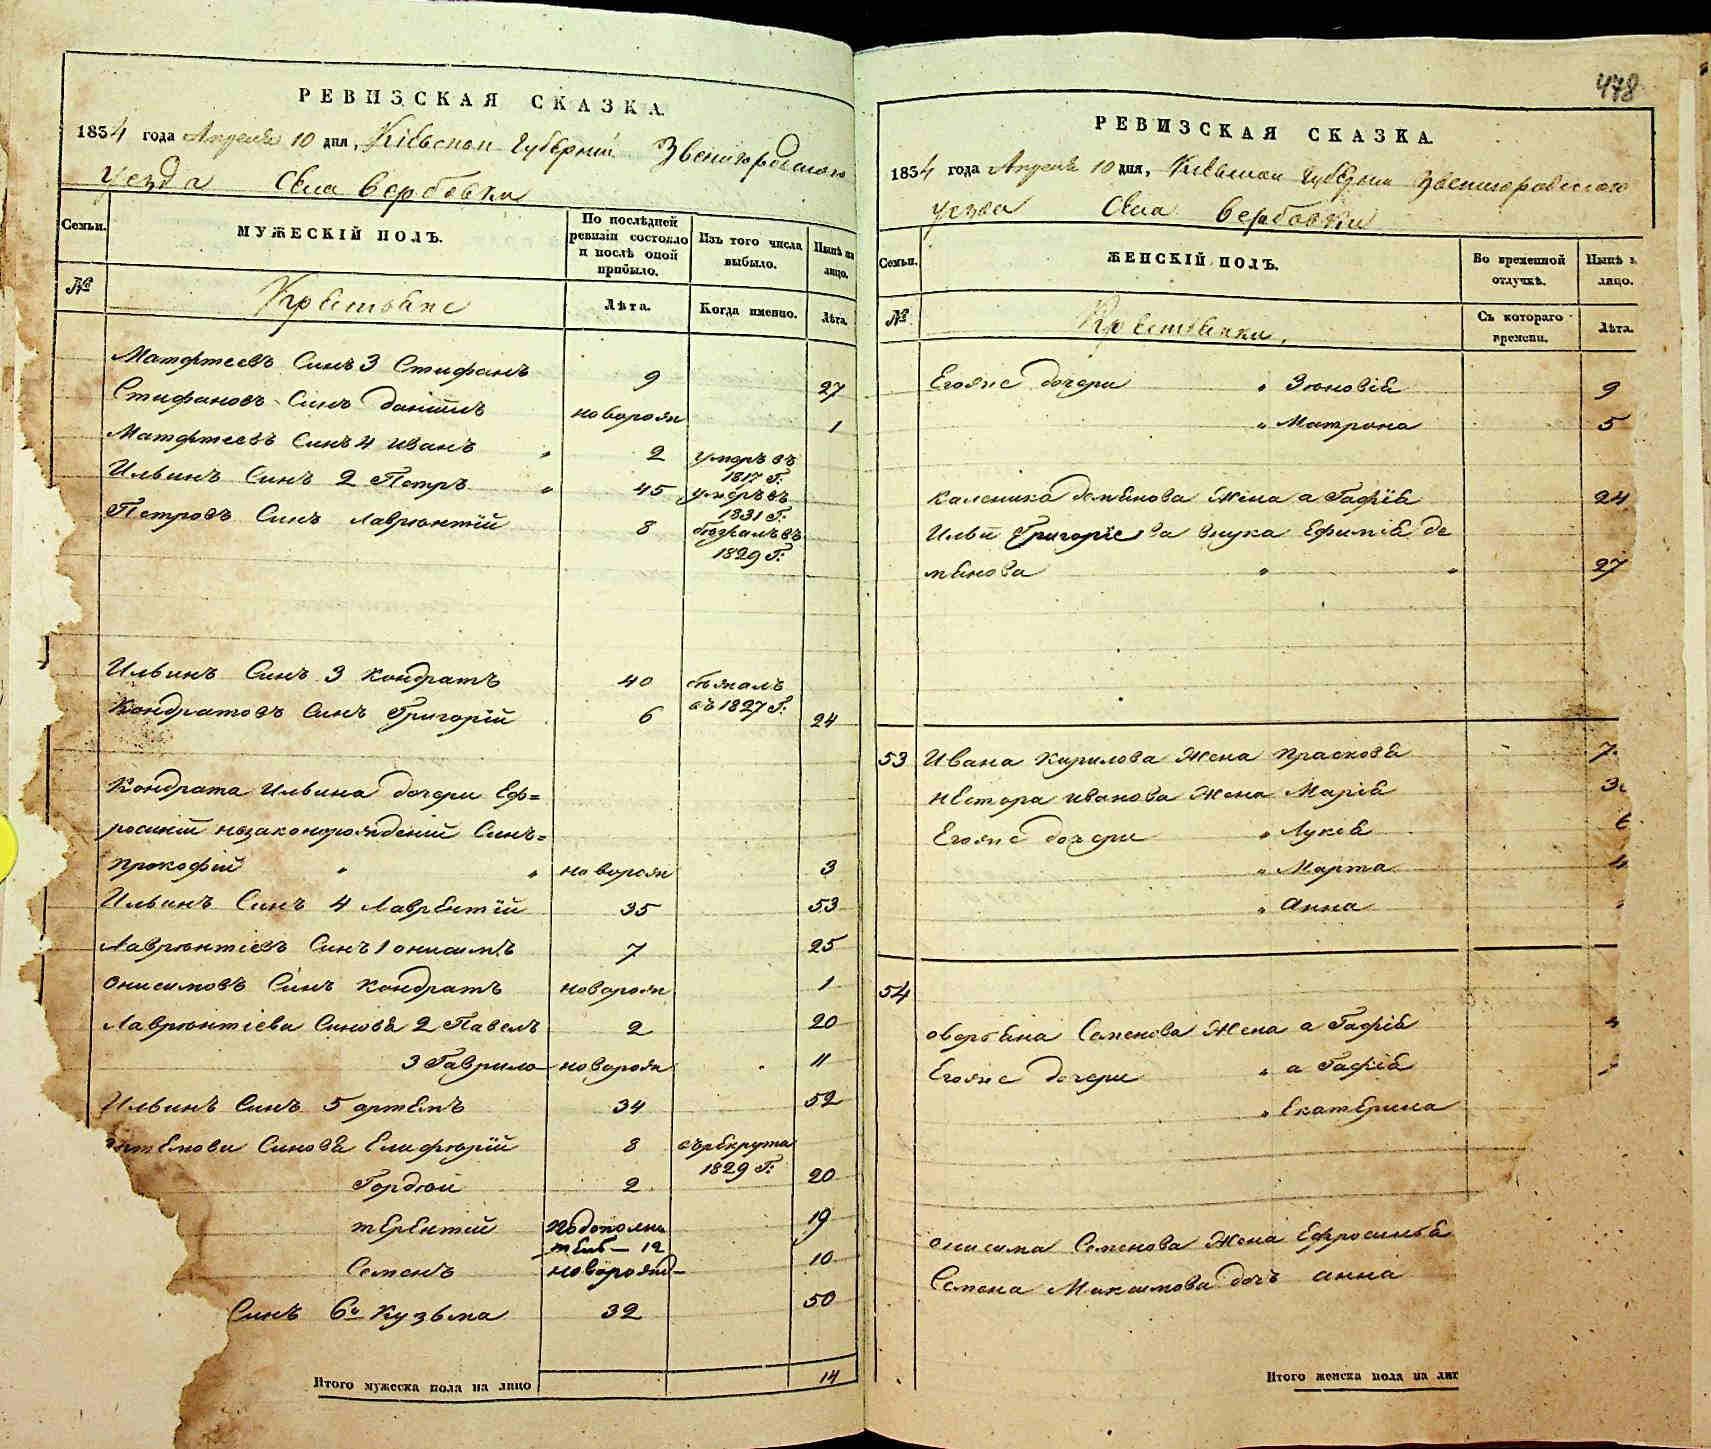 РЕВИЗСКАЯ СКАЗКА.
1834 года Апреля 10 дня, Кіевской Губерніи Звенигородскаго
уезда Села Вербовки
Семьи.
МУЖЕСКІЙ ПОЛЪ.
По послѣдней ревизіи состояло и послѣ оной прибыло.
Изъ того числа выбыло.
Нынѣ на лицо.
№
Крестьяне
Лѣта.
Когда именно.
Лѣта.
Матфтеевъ Синъ 3 Стифанъ 9 27
Стифановъ Синъ Даніилъ новорож 1
Матфтеевъ Синъ 4 Иванъ " 2 умеръ въ 1817 Г:
Ильинъ Синъ 2 Петръ " 45 умеръ въ 1831 Г:
Петровъ Синъ Лаврентій 8 бежалъ въ 1829 Г:
Ильинъ Синъ 3 Кондратъ 40 бежалъ въ 1827 Г:
Кондратовъ Синъ Григорій 6 24
Кондрата Ильина дочери Еф=
росиніи незаконорожденій Синъ=
Прокофій " " новорож 3
Ильинъ Синъ 4 Лаврентій 35 53
Лаврентіевъ Синъ 1 Онисимъ 7 25
Онисимовъ Синъ Кондратъ новорож 1
Лаврентіеви Синовя 2 Павелъ 2 20
3 Гаврило новорож 11
Ильинъ Синъ 5 Артемъ 34 52
Артемови Синовя Елифтерій 8 въ рекрута 1829 Г:
Гордей 2 20
Терентій подополни телъ — 12 19
Семенъ новорожд — 10
Синъ 6й Кузьма 32 50
Итого мужеска пола на лицо 14
478
РЕВИЗСКАЯ СКАЗКА.
1834 года Апреля 10 дня, Кіевской Губерніи Звенигородскаго
уезда Села Вербовки
Семьи.
ЖЕНСКІЙ ПОЛЪ.
Во временной отлучкѣ.
Нынѣ н лицо.
№
Крестьянки.
Съ котораго времени.
Лѣта.
Егоже дочери " Зеновія 9
" Матрона 5
Каленика Демянова Жена Агафія 24
Ильи Григорієва внука Ефимія Де
мянова " " 27
53 Ивана Кирилова Жена Прасковя 7
Нестора Иванова Жена Марія 3
Егоже дочери " Лукея 6
" Марта 4
" Анна
54
Оверъяна Семенова Жена Агафія
Егоже дочери " Агафія
" Екатерина
Онисима Семенова Жена Ефросинья
Семена Максимова дочъ Анна
Итого женска пола на лиц